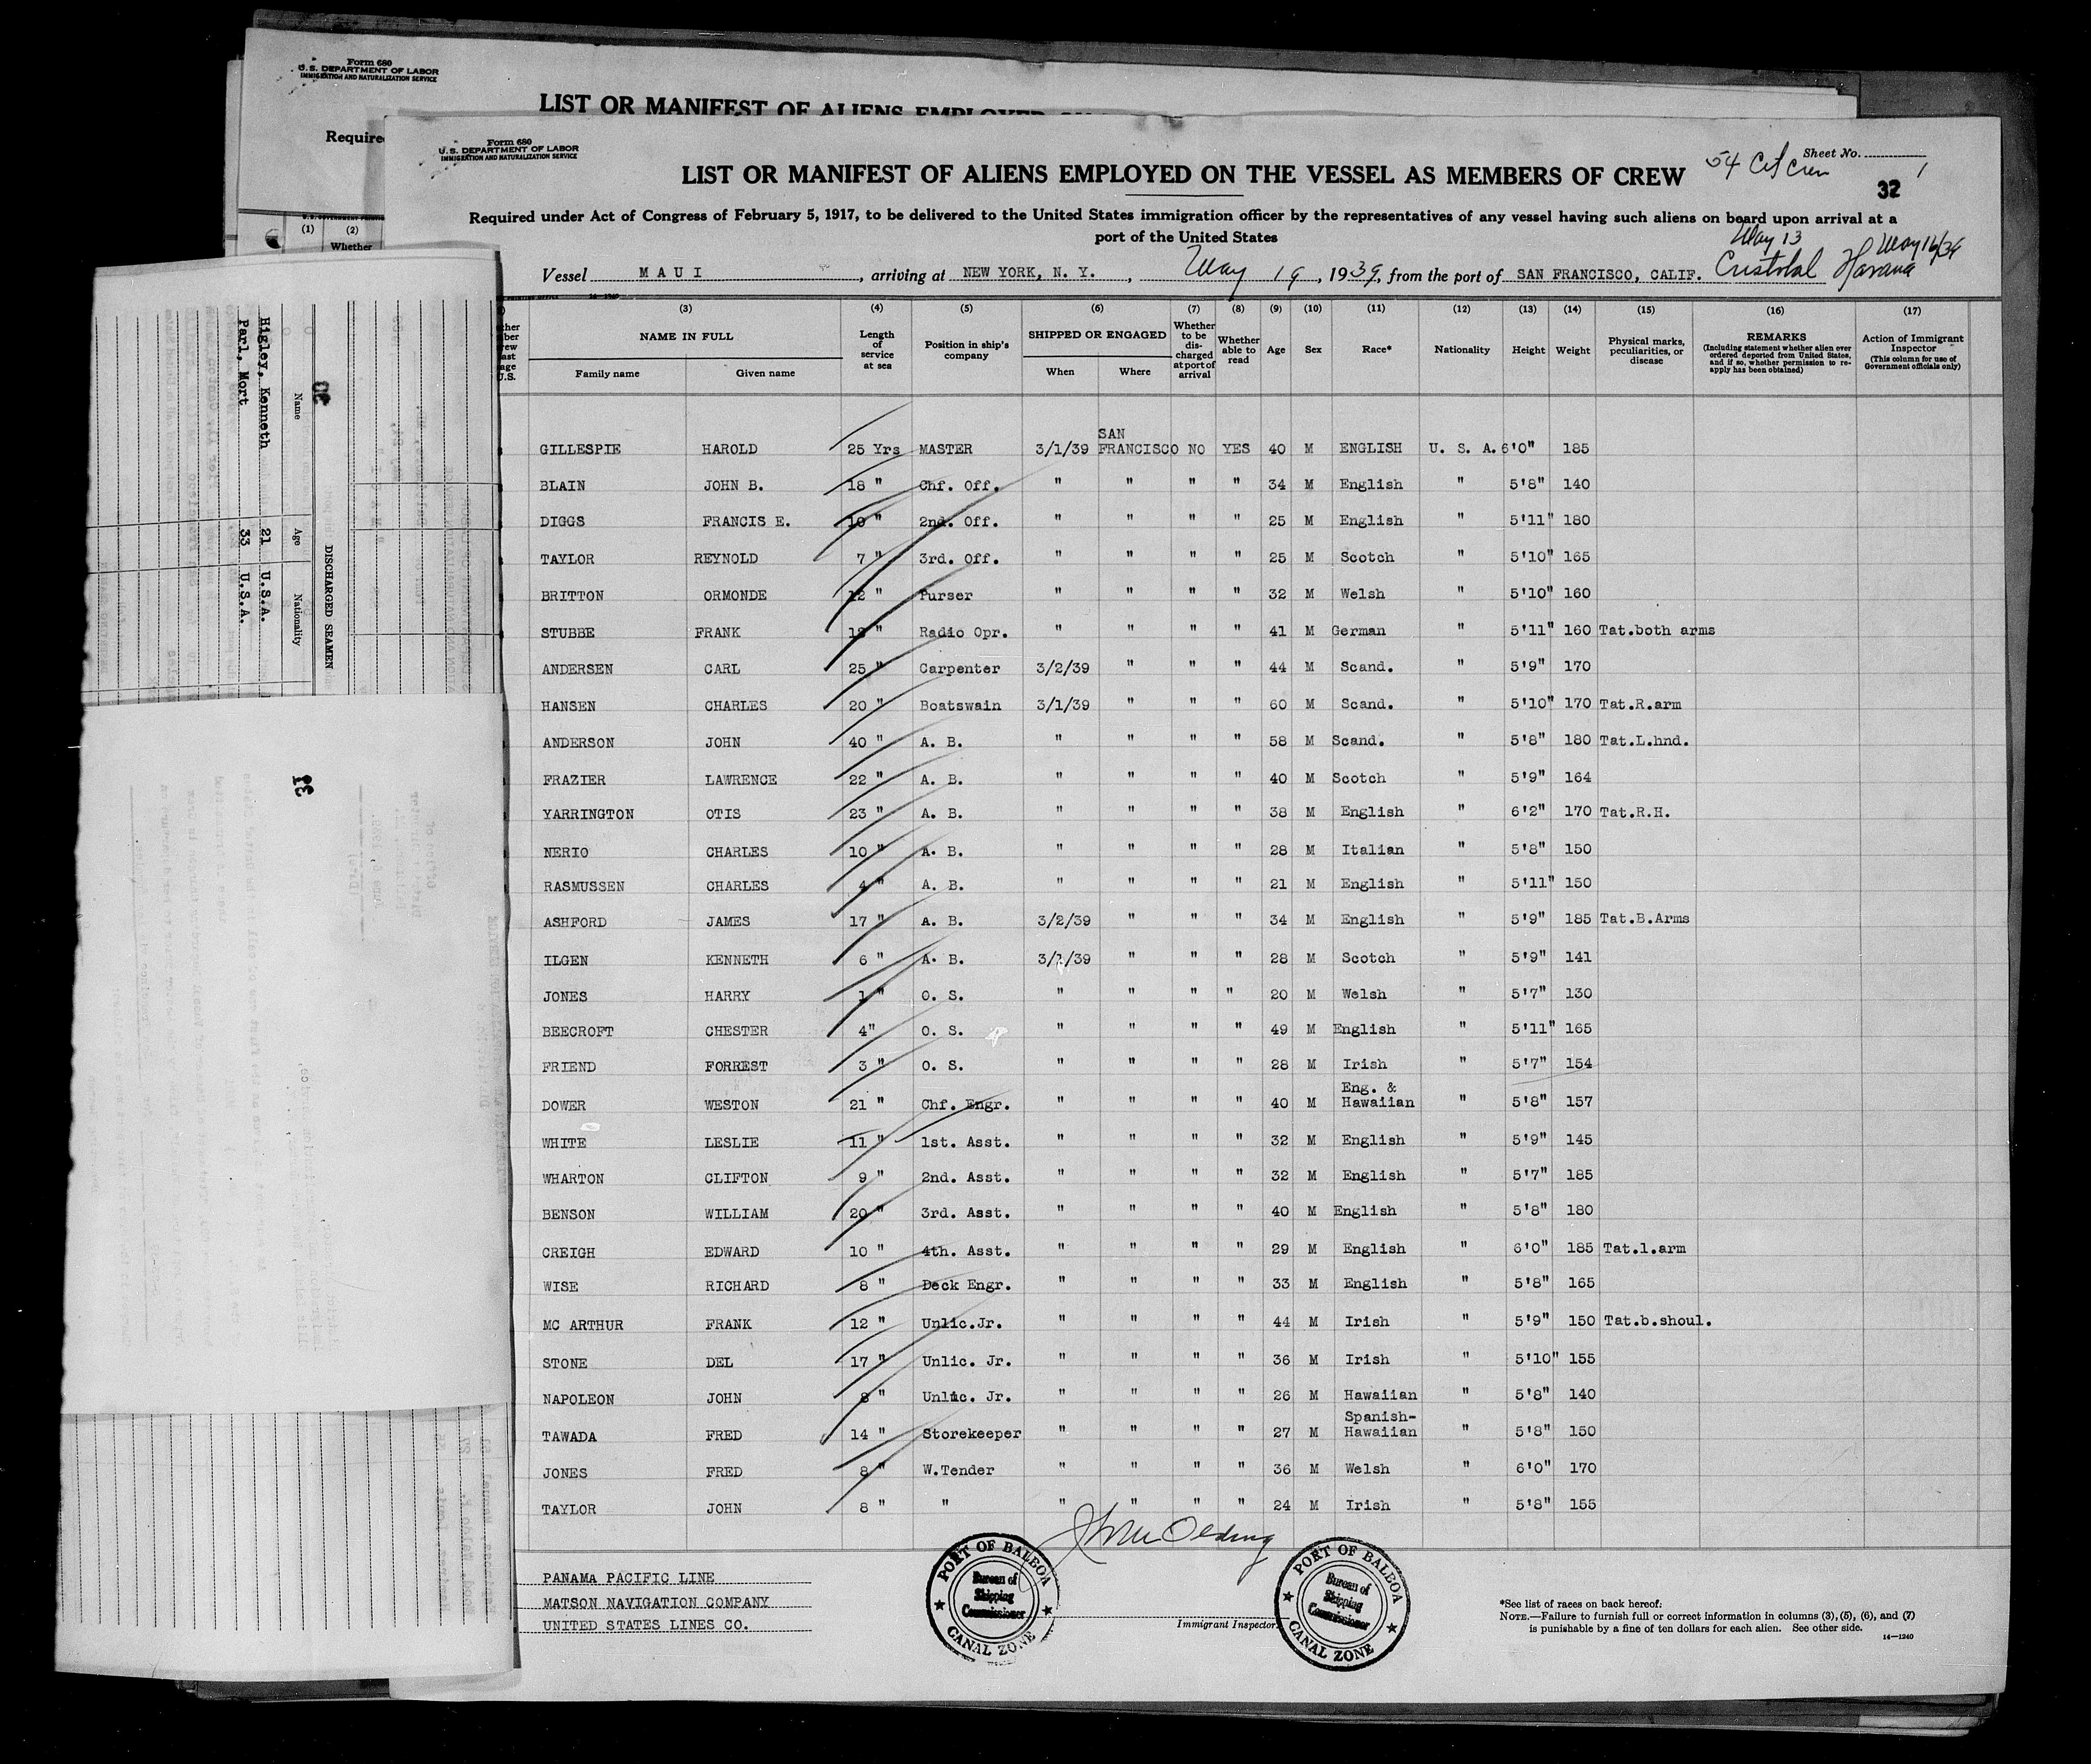 Form 680
U. S. DEPARTMENT OF LABOR
IMMIGRATION AND NATURALIZATION SERVICE
LIST OR MANIFEST OF ALIENS EMPLOYED
Required
(1) (2)
Whether
Form 680
U. S. DEPARTMENT OF LABOR
IMMIGRATION AND NATURALIZATION SERVICE
Sheet No.
54 Cit Crew 1
32
LIST OR MANIFEST OF ALIENS EMPLOYED ON THE VESSEL AS MEMBERS OF CREW
Required under Act of Congress of February 5, 1917, to be delivered to the United States immigration officer by the representatives of any vessel having such aliens on board upon arrival at a
port of the United States
May 13 May 16/39
Vessel MAUI, arriving at NEW YORK, N. Y., May 19, 1939, from the port of SAN FRANCISCO, CALIF. Cristobal Havana
(3) (4) (5) (6) (7) (8) (9) (10) (11) (12) (13) (14) (15) (16) (17)
NAME IN FULL
Family name Given name
Length of service at sea
Position in ship's company
SHIPPED OR ENGAGED
When Where
Whether to be discharged at port of arrival
Whether able to read
Age
Sex
Race*
Nationality
Height
Weight
Physical marks, peculiarities, or disease
REMARKS
(Including statement whether alien ever ordered deported from United States, and if so, whether permission to re-apply has been obtained)
Action of Immigrant Inspector
(This column for use of Government officials only)
GILLESPIE HAROLD 25 Yrs MASTER 3/1/39 SAN FRANCISCO NO YES 40 M ENGLISH U. S. A. 6'0" 185
BLAIN JOHN B. 18 " Chf. Off. " " " " 34 M English " 5'8" 140
DIGGS FRANCIS E. 10 " 2nd. Off. " " " " 25 M English " 5'11" 180
TAYLOR REYNOLD 7 " 3rd. Off. " " " " 25 M Scotch " 5'10" 165
BRITTON ORMONDE 12 " Purser " " " " 32 M Welsh " 5'10" 160
STUBBE FRANK " Radio Opr. " " " " 41 M German " 5'11" 160 Tat.both arms
ANDERSEN CARL 25 " Carpenter 3/2/39 " " " 44 M Scand. " 5'9" 170
HANSEN CHARLES 20 " Boatswain 3/1/39 " " " 60 M Scand. " 5'10" 170 Tat.R.arm
ANDERSON JOHN 40 " A. B. " " " " 58 M Scand. " 5'8" 180 Tat.L.hnd.
FRAZIER LAWRENCE 22 " A. B. " " " " 40 M Scotch " 5'9" 164
YARRINGTON OTIS 23 " A. B. " " " " 38 M English " 6'2" 170 Tat.R.H.
NERIO CHARLES 10 " A. B. " " " " 28 M Italian " 5'8" 150
RASMUSSEN CHARLES 4 " A. B. " " " " 21 M English " 5'11" 150
ASHFORD JAMES 17 " A. B. 3/2/39 " " " 34 M English " 5'9" 185 Tat.B.Arms
ILGEN KENNETH 6 " A. B. 3/1/39 " " " 28 M Scotch " 5'9" 141
JONES HARRY 1 " O. S. " " " " 20 M Welsh " 5'7" 130
BEECROFT CHESTER 4" O. S. " " " " 49 M English " 5'11" 165
FRIEND FORREST 3 " O. S. " " " " 28 M Irish " 5'7" 154
DOWER WESTON 21 " Chf. Engr. " " " " 40 M Eng. & Hawaiian " 5'8" 157
WHITE LESLIE 11 " 1st. Asst. " " " " 32 M English " 5'9" 145
WHARTON CLIFTON 9 " 2nd. Asst. " " " " 32 M English " 5'7" 185
BENSON WILLIAM 20 " 3rd. Asst. " " " " 40 M English " 5'8" 180
CREIGH EDWARD 10 " 4th. Asst. " " " " 29 M English " 6'0" 185 Tat.l.arm
WISE RICHARD 8 " Deck Engr. " " " " 33 M English " 5'8" 165
MC ARTHUR FRANK 12 " Unlic.Jr. " " " " 44 M Irish " 5'9" 150 Tat.b.shoul.
STONE DEL 17 " Unlic. Jr. " " " " 36 M Irish " 5'10" 155
NAPOLEON JOHN 8 " Unlic. Jr. " " " " 26 M Hawaiian " 5'8" 140
TAWADA FRED 14 " Storekeeper " " " " 27 M Spanish-Hawaiian " 5'8" 150
JONES FRED 8 " W.Tender " " " " 36 M Welsh " 6'0" 170
TAYLOR JOHN 8 " " " " " " 24 M Irish " 5'8" 155
PANAMA PACIFIC LINE
MATSON NAVIGATION COMPANY
UNITED STATES LINES CO.
PORT OF BALBOA
Bureau of Shipping Commissioner
CANAL ZONE
Immigrant Inspector.
PORT OF BALBOA
Bureau of Shipping Commissioner
CANAL ZONE
*See list of races on back hereof.
NOTE.—Failure to furnish full or correct information in columns (3), (5), (6), and (7)
is punishable by a fine of ten dollars for each alien. See other side.
14—1240
30
DISCHARGED SEAMEN
Name Age Nationality
Higley, Kenneth 21 U.S.A.
Parl, Mort 33 U.S.A.
31